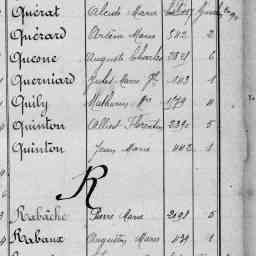 Quérat Alcide Marie
Quérard Arsène Marie 542 2
Quesne Auguste Charles 2821 6
Querniard Jules Marie 143 1
Quily Mathurin 1779 4
Quinton Albert Florentin 2390 5
Quinton Jean Marie 442 1
R
Rabâche Pierre Marie 2098 5
Rabaux Augustin Marie 439 1